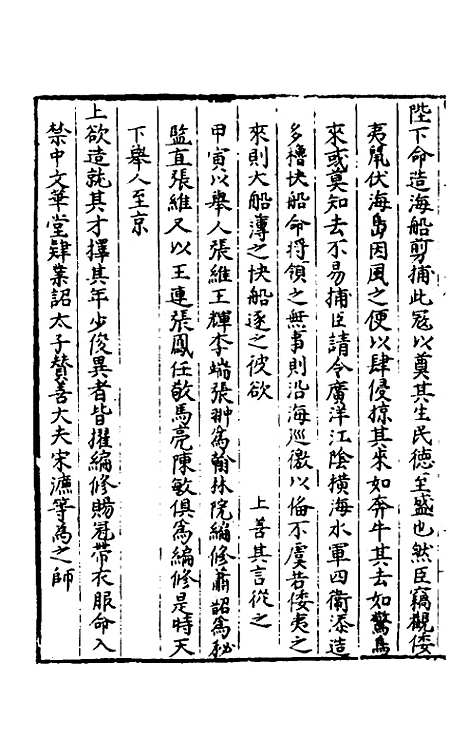 陛下命造海船剪捕此冦以奠其生民德至盛也然臣竊觀倭
夷鼠伏海島因風之便以肆侵掠其來如奔牛其去如驚鳥
來或莫知去不易捕臣請令廣洋江陰橫海水軍四衛添造
多櫓快船命将領之無事則沿海巡徼以俻不虞若倭夷之
來則大船薄之快船逐之彼欲　　　　　上善其言從之
甲寅以舉人張維王輝李端張翀為翰林院編修蕭韶為秘
監直張維又以王連張鳳任敬馬亮陳敏俱為編修是時天
下舉人至京
上欲造就其才擇其年少俊異者皆擢編修賜冠帶衣服命入
禁中文華堂肄業詔太子賛善大夫宋濂等為之師